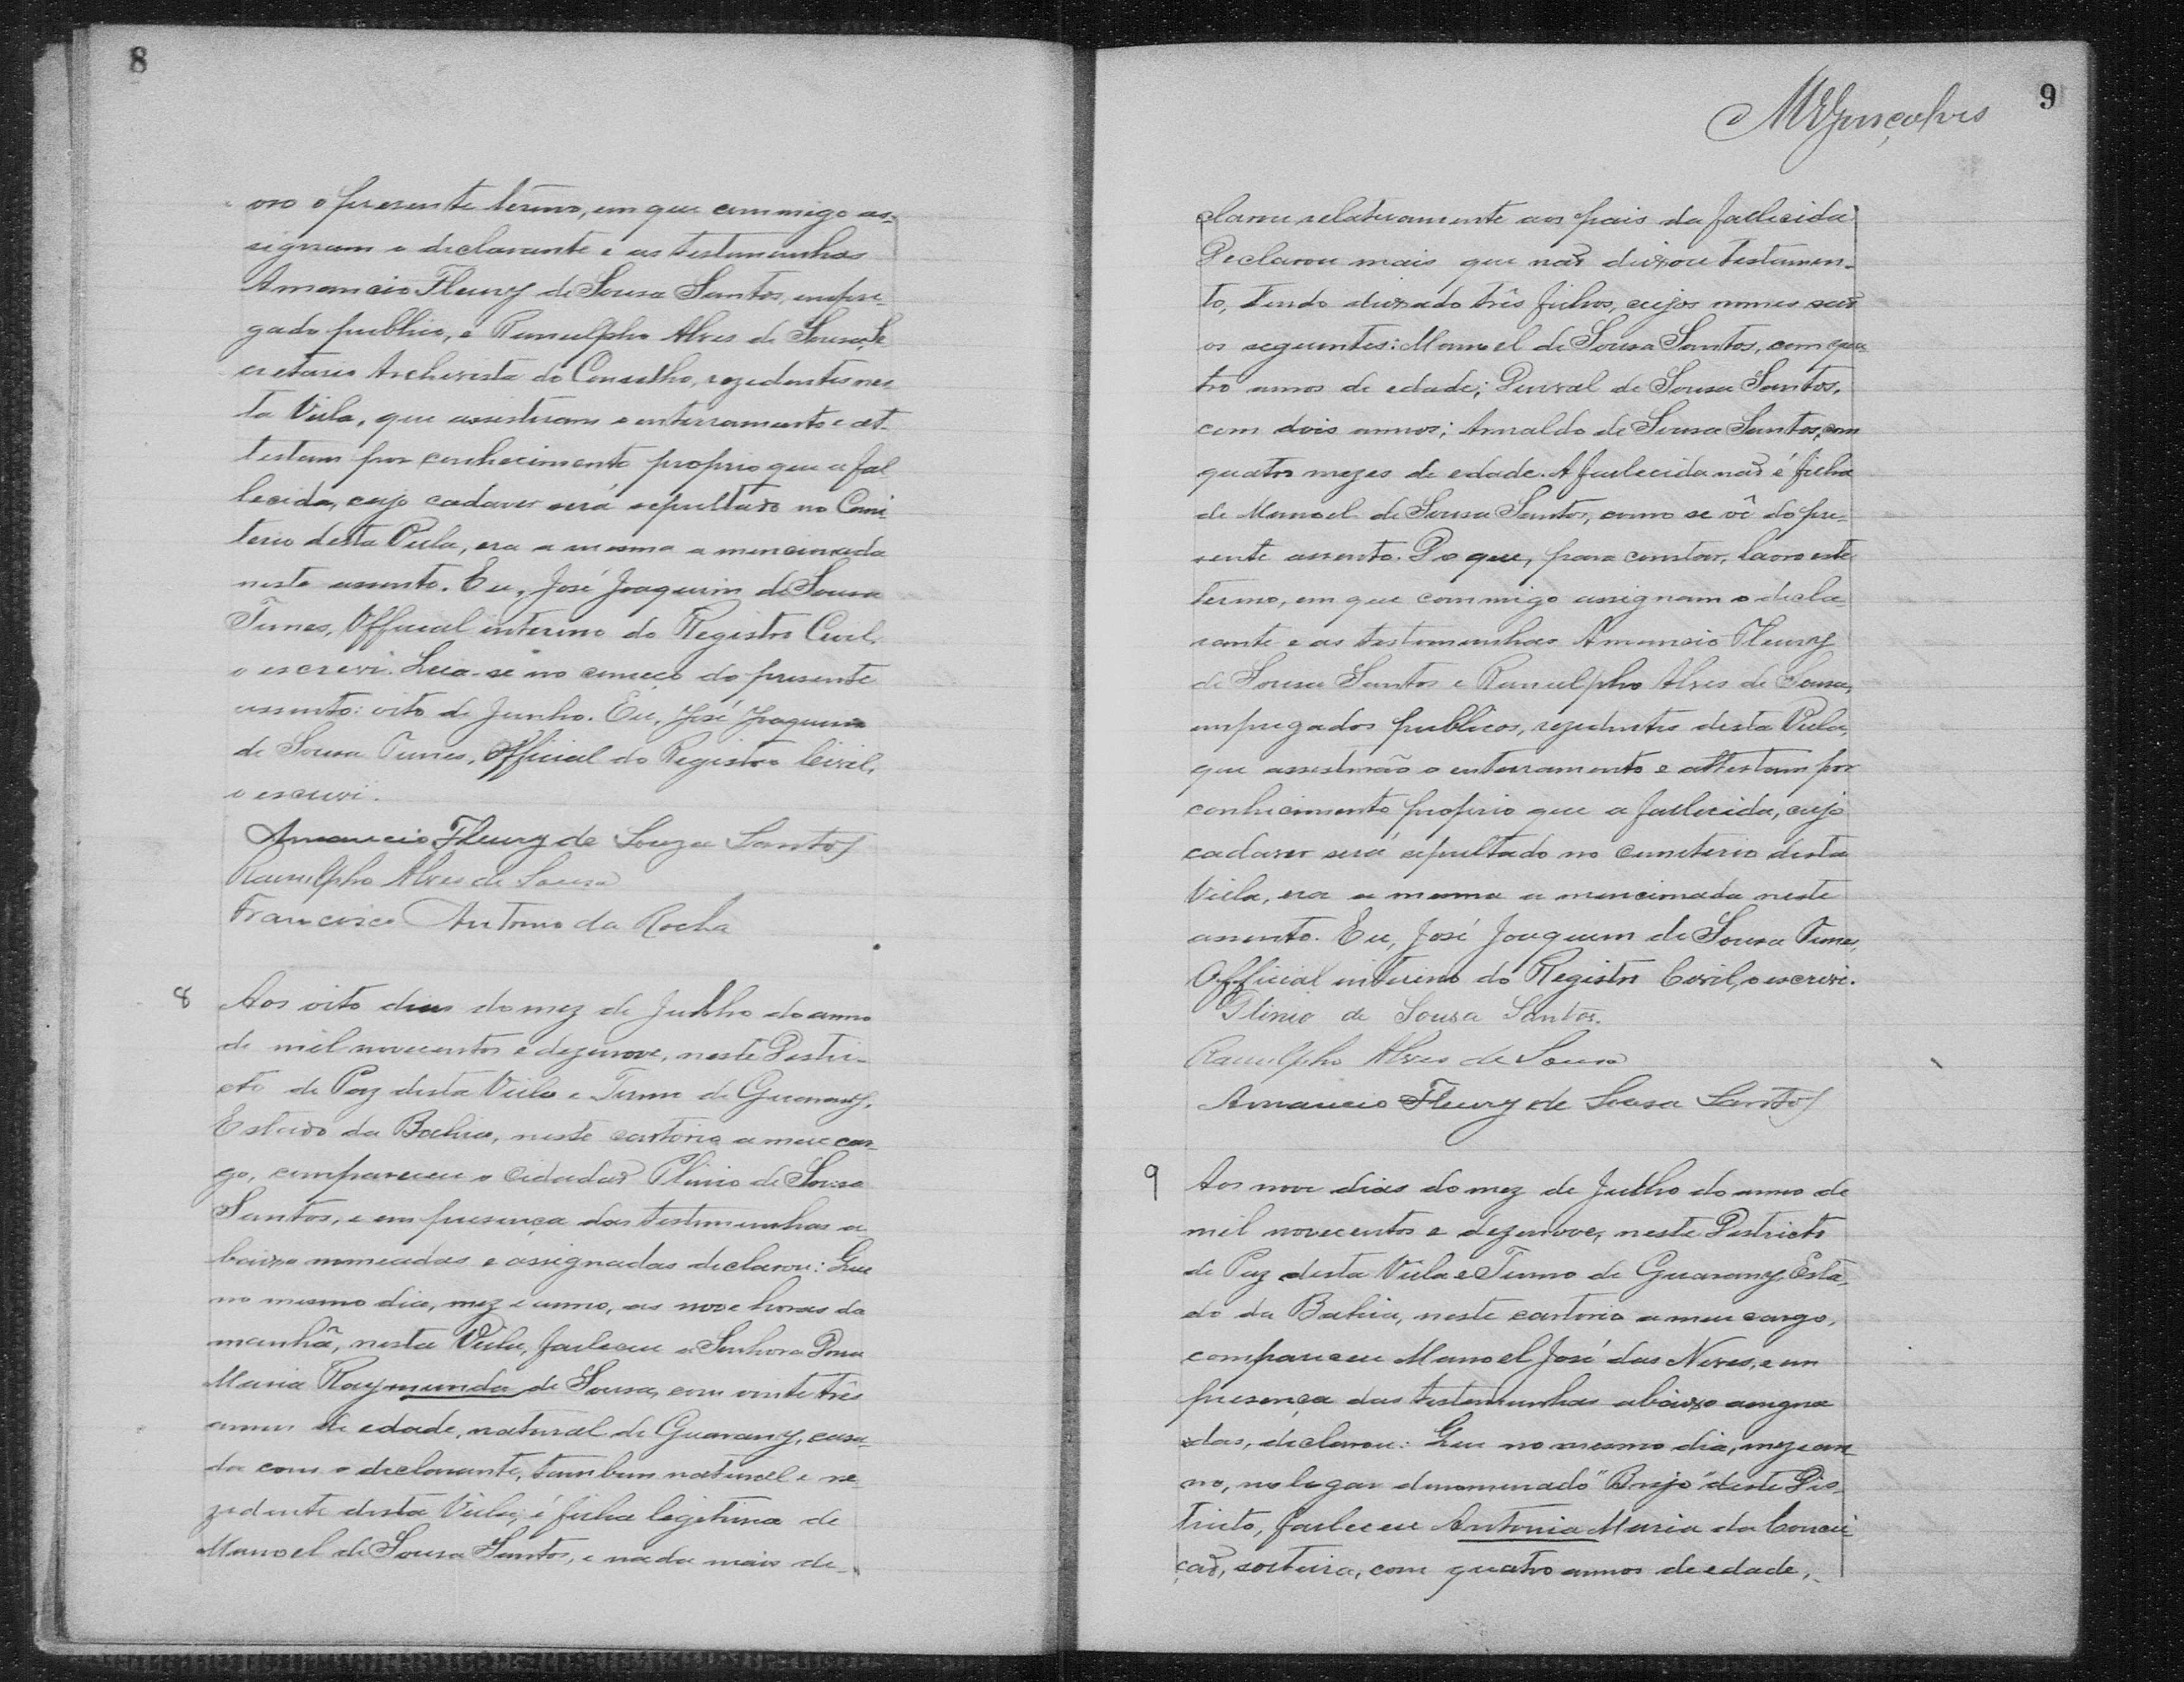 8
vro o presente termo, em que commigo as-
signam o declarante e as testemunhas
Amancio Fleury de Sousa Santos, empre-
gado publico, e Ranulpho Alves de Sousa, Se
cretario Archivista do Conselho, rezidentes nes
ta Villa, que assistiram o enterramento e at-
testam por conhecimento proprio que a fal
lecida, cujo cadaver será sepultado no Cemi
terio desta Villa, era a mesma a mencionada
neste assento. Eu, José Joaquim de Sousa
Tunes, Official interino do Registro Civil,
o escrevi. Leia-se no começo do presente
assento: oito de Junho. Eu, José Joaquim
de Sousa Tunes, Official do Registro Civil,
o escrevi.
Amancio Fleury de Souza Santos
Ranulpho Alves de Sousa
Francisco Antonio da Rocha
8 Aos oito dias do mez de Julho do anno
de mil novecentos e dezenove, neste Distri-
cto de Paz desta Villa e Termo de Guarany,
Estado da Bahia, neste cartorio a meu car-
go, compareceu o cidadão Plinio de Sousa
Santos, e em presença das testemunhas a-
baixo nomeadas e assignadas declarou: Que
no mesmo dia, mez e anno, as nove horas da
manhã, nesta Villa, falleceu a Senhora Dona
Maria Raymunda de Sousa, com vinte três
annos de edade, natural de Guarany, casa-
da com o declarante, tambem natural e re-
zidente desta Villa; é filha legitima de
Manoel de Sousa Santos, e nada mais de-
9
MVGonçalves
clarou relativamente aos pais da fallecida.
Declarou mais que não deixou testamen-
to, tendo deixado três filhos, cujos nomes são
os seguintes: Manoel de Sousa Santos, com qua-
tro annos de edade; Durval de Sousa Santos,
com dois annos; Arnaldo de Sousa Santos, com
quatro mezes de edade. A fallecida não é filha
de Manoel de Sousa Santos, como se vê do pre-
sente assento. Do que, para constar, lavro este
termo, em que commigo assignam o decla-
rante e as testemunhas Amancio Fleury
de Sousa Santos e Ranulpho Alves de Sousa,
empregados publicos, rezidentes desta Villa,
que assestirão o enterramento e attestam por
conhecimento proprio que a fallecida, cujo
cadaver será sepultado no cemiterio desta
Villa, era a mesma a mencionada neste
assento. Eu, José Joaquim de Sousa Tunes,
Official interino do Registro Civil, o escrevi.
Plinio de Sousa Santos.
Ranulpho Alves de Sousa
Amancio Fleury de Sousa Santos
9 Aos nove dias do mez de Julho do anno de
mil novecentos e dezenove, neste Districto
de Paz desta Villa e Termo de Guarany, Esta-
do da Bahia, neste cartorio a meu cargo,
compareceu Manoel José das Neves, e em
presença das testemunhas abaixo assigna
das, declarou: Que no mesmo dia, mez e an
no, no logar denominado "Brejo" deste Dis-
tricto, falleceu Antonia Maria da Concei-
ção, solteira, com quatro annos de edade,